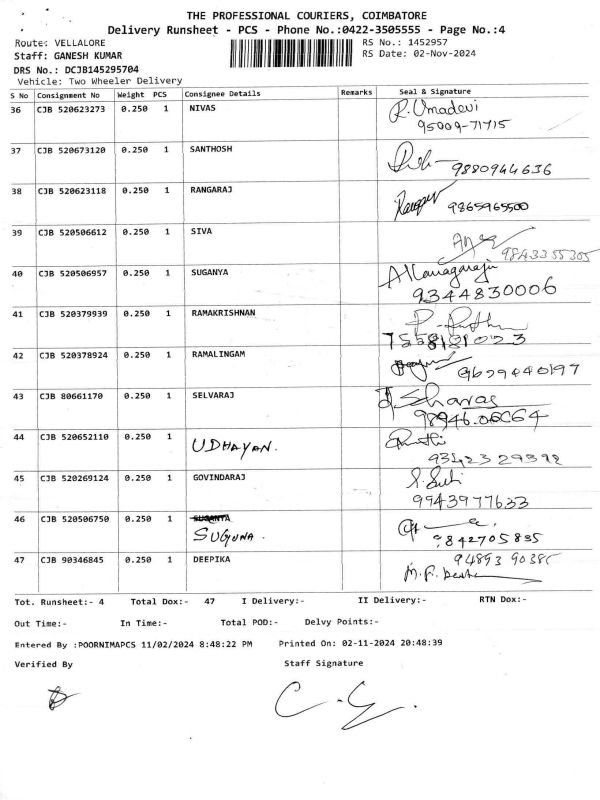 THE PROFESSIONAL COURIERS, COIMBATORE
Delivery Runsheet - PCS - Phone No.:0422-3505555 - Page No.:4
Route: VELLALORE RS No.: 1452957
Staff: GANESH KUMAR RS Date: 02-Nov-2024
DRS No.: DCJB145295704
Vehicle: Two Wheeler Delivery
S No Consignment No Weight PCS Consignee Details Remarks Seal & Signature
36 CJB 520623273 0.250 1 NIVAS R. Umadevi
95009-71715
37 CJB 520673120 0.250 1 SANTHOSH
9880944636
38 CJB 520623118 0.250 1 RANGARAJ
9865965500
39 CJB 520506612 0.250 1 SIVA
9843355305
40 CJB 520506957 0.250 1 SUGANYA A Kanagaraju
9344830006
41 CJB 520379939 0.250 1 RAMAKRISHNAN
7558181023
42 CJB 520378924 0.250 1 RAMALINGAM
9629440197
43 CJB 80661170 0.250 1 SELVARAJ
98946.06C64
44 CJB 520652110 0.250 1 UDHAYAN.
9342329392
45 CJB 520269124 0.250 1 GOVINDARAJ
9943977633
46 CJB 520506750 0.250 1 SUGANYA
SUGUNA. 9842705835
47 CJB 90346845 0.250 1 DEEPIKA 94893 90385
Tot. Runsheet:- 4 Total Dox:- 47 I Delivery:- II Delivery:- RTN Dox:-
Out Time:- In Time:- Total POD:- Delvy Points:-
Entered By :POORNIMAPCS 11/02/2024 8:48:22 PM Printed On: 02-11-2024 20:48:39
Verified By Staff Signature